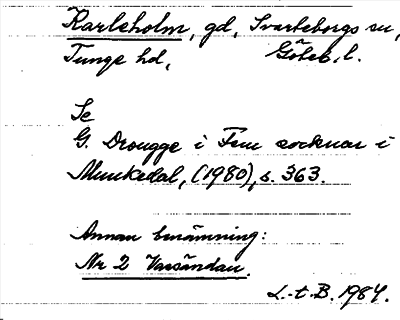 Karleholm, gd, Svarteborgs sn,
Tunge hd, Göteb. l.
Se
G. Drougge i Fem socknar i
Munkedal, (1980), s. 363.
Annan benämning:
Nr 2 Vassändan.
L.-t. B. 1984.